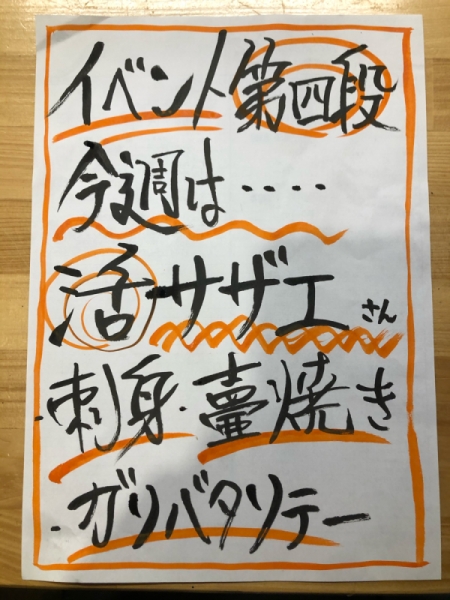 イベント第四段
今週は・・・・・
活サザエさん
・刺身・壷焼き
・ガリバタリテー